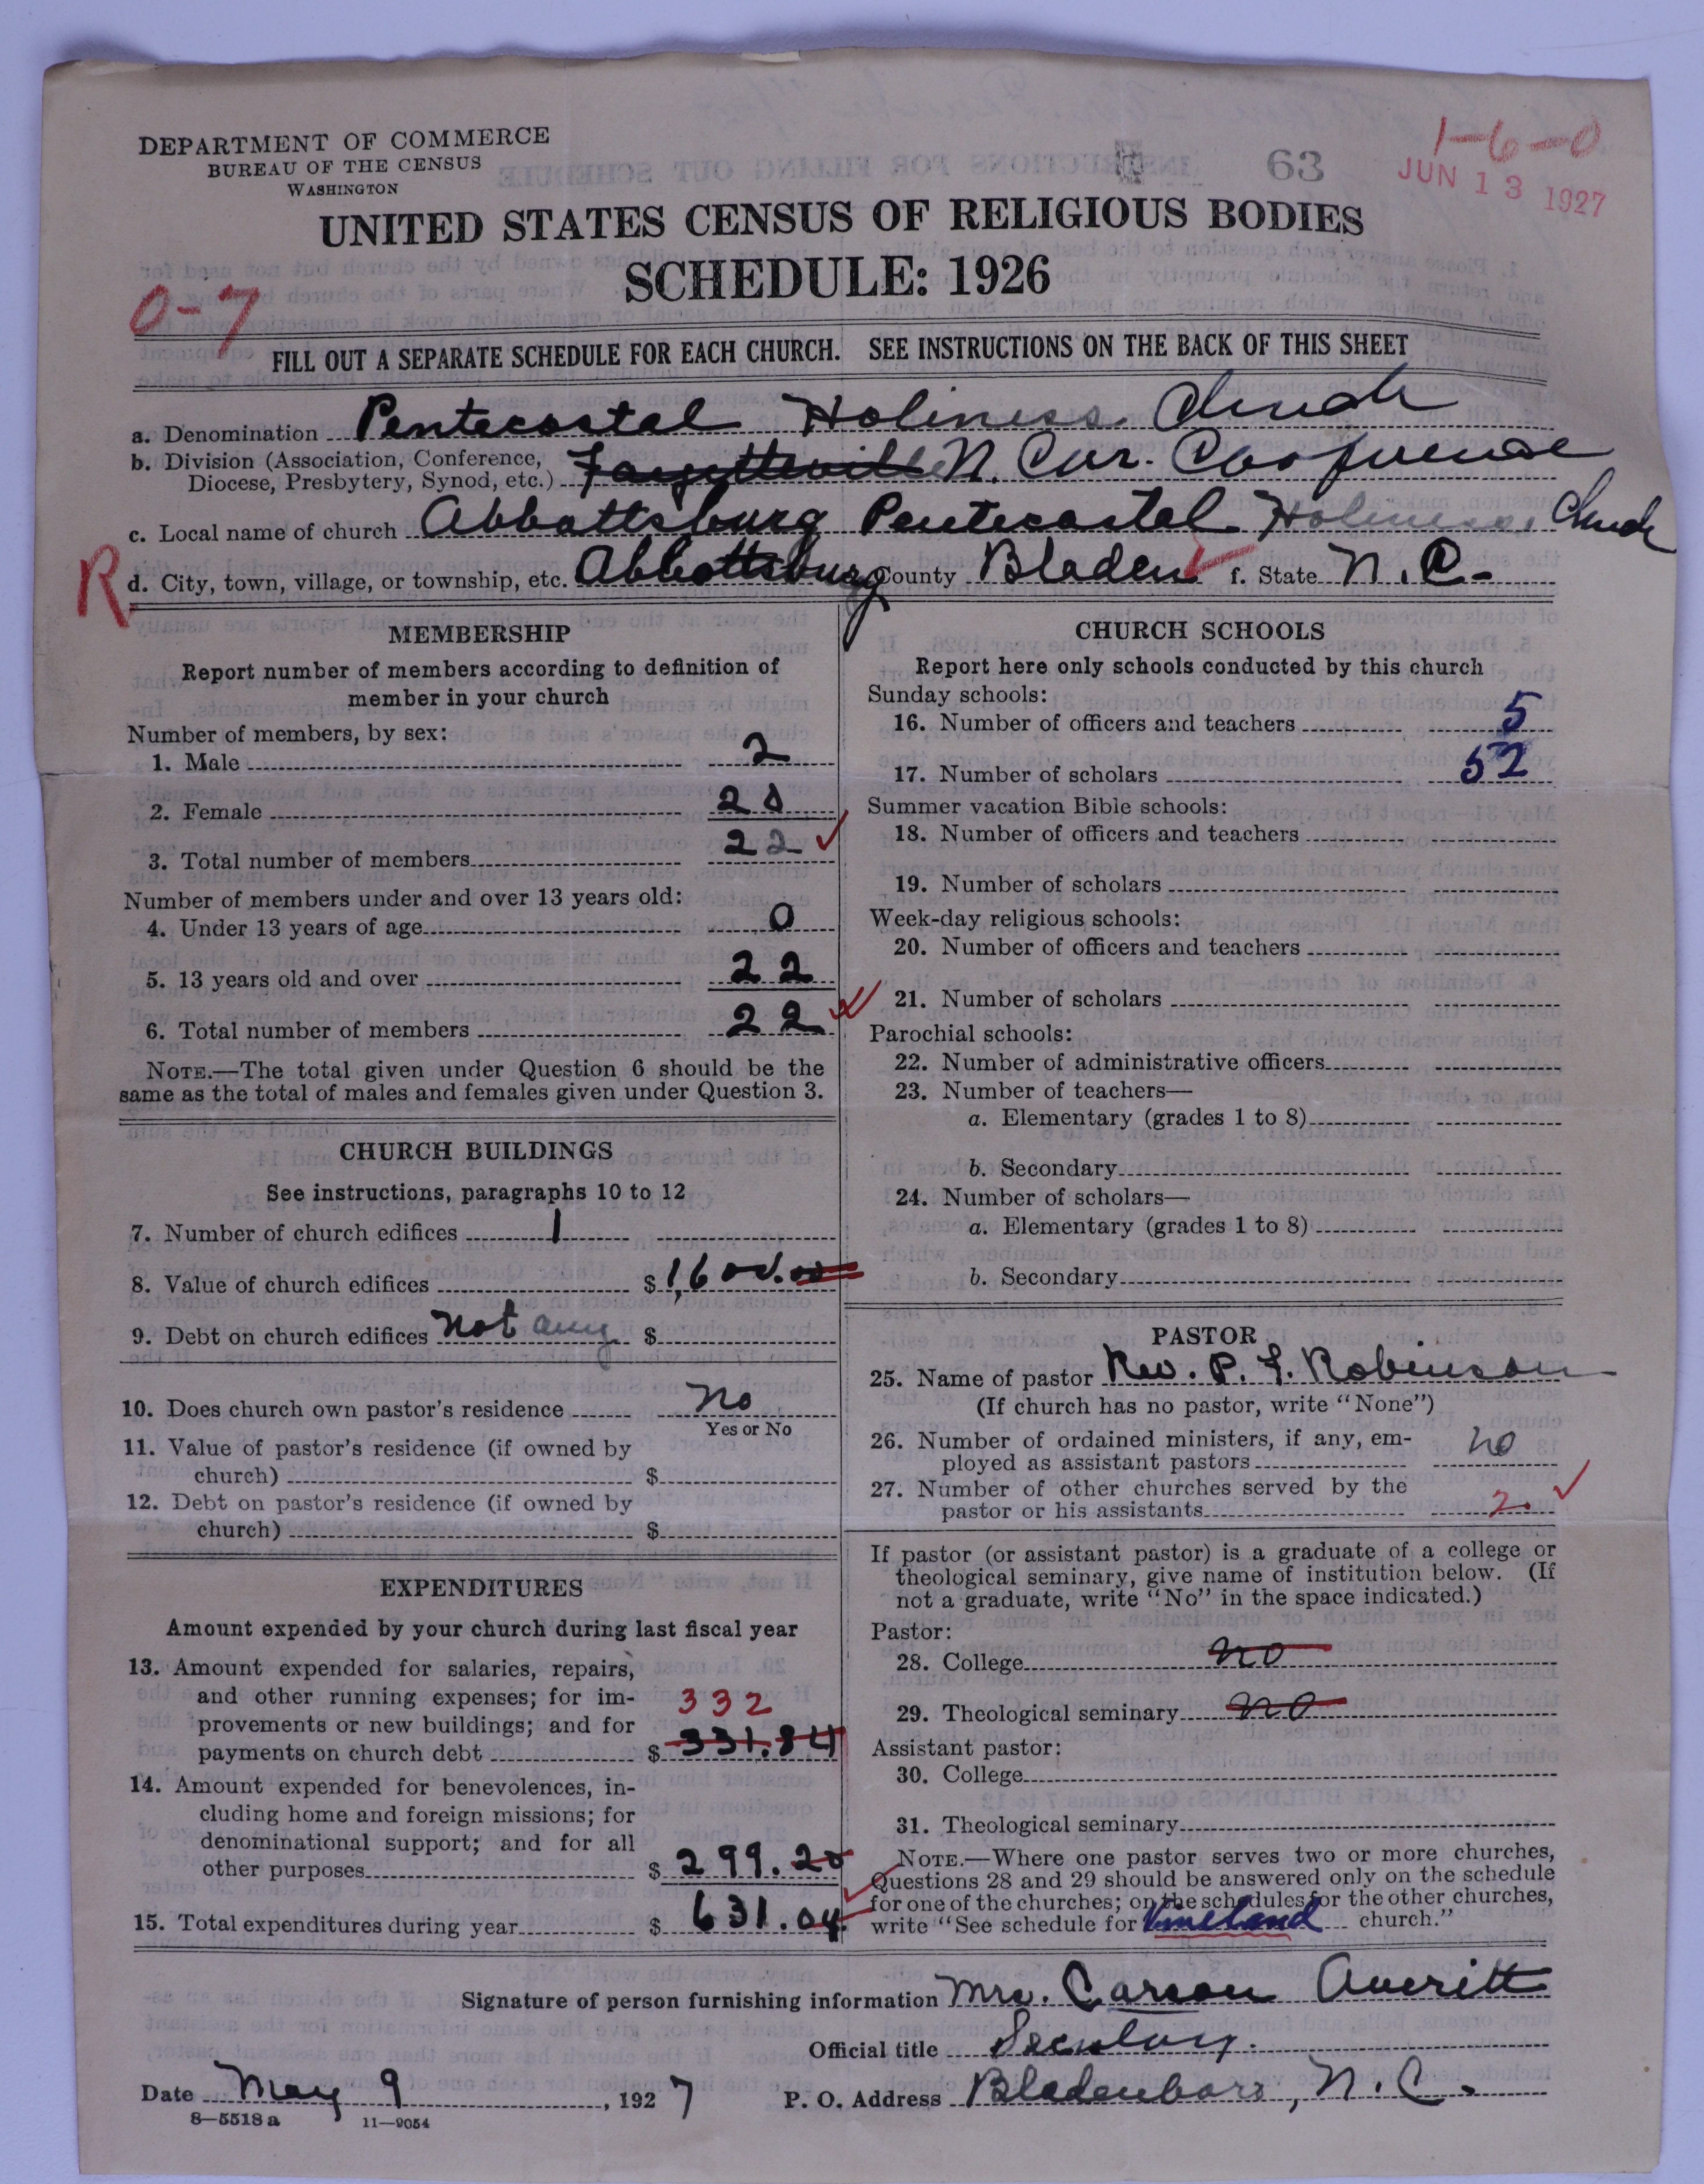 DEPARTMENT OF COMMERCE
BUREAU OF THE CENSUS
WASHINGTON
63
1-6-0
JUN 13 1927
UNITED STATES CENSUS OF RELIGIOUS BODIES
SCHEDULE: 1926
0-7
FILL OUT A SEPARATE SCHEDULE FOR EACH CHURCH. SEE INSTRUCTIONS ON THE BACK OF THIS SHEET
a. Denomination Pentecostal Holiness Church
b. Division (Association, Conference,
Diocese, Presbytery, Synod, etc.) Fayetteville N. Car. Conference
c. Local name of church Abbottsburg Pentecostal Holiness Church
R
d. City, town, village, or township, etc. Abbottsburg County Bladen f. State N. C.
MEMBERSHIP
Report number of members according to definition of
member in your church
Number of members, by sex:
1. Male 2
2. Female 20
3. Total number of members 22
Number of members under and over 13 years old:
4. Under 13 years of age 0
5. 13 years old and over 22
6. Total number of members 22
NOTE.—The total given under Question 6 should be the
same as the total of males and females given under Question 3.
CHURCH BUILDINGS
See instructions, paragraphs 10 to 12
7. Number of church edifices 1
8. Value of church edifices $1,600.00
9. Debt on church edifices not any $
10. Does church own pastor's residence no
Yes or No
11. Value of pastor's residence (if owned by
church) $
12. Debt on pastor's residence (if owned by
church) $
EXPENDITURES
Amount expended by your church during last fiscal year
13. Amount expended for salaries, repairs,
and other running expenses; for im-
provements or new buildings; and for 332
payments on church debt $ 331.84
14. Amount expended for benevolences, in-
cluding home and foreign missions; for
denominational support; and for all
other purposes $ 299.20
15. Total expenditures during year $ 631.04
CHURCH SCHOOLS
Report here only schools conducted by this church
Sunday schools:
16. Number of officers and teachers 5
17. Number of scholars 52
Summer vacation Bible schools:
18. Number of officers and teachers
19. Number of scholars
Week-day religious schools:
20. Number of officers and teachers
21. Number of scholars
Parochial schools:
22. Number of administrative officers
23. Number of teachers—
a. Elementary (grades 1 to 8)
b. Secondary
24. Number of scholars—
a. Elementary (grades 1 to 8)
b. Secondary
PASTOR
25. Name of pastor Rev. P. F. Robinson
(If church has no pastor, write "None")
26. Number of ordained ministers, if any, em-
ployed as assistant pastors no
27. Number of other churches served by the
pastor or his assistants 2
If pastor (or assistant pastor) is a graduate of a college or
theological seminary, give name of institution below. (If
not a graduate, write "No" in the space indicated.)
Pastor:
28. College no
29. Theological seminary no
Assistant pastor:
30. College
31. Theological seminary
NOTE.—Where one pastor serves two or more churches,
Questions 28 and 29 should be answered only on the schedule
for one of the churches; on the schedules for the other churches,
write "See schedule for Vineland church."
Signature of person furnishing information Mrs. Carson Averitt
Official title Secretary.
Date May 9, 1927 P. O. Address Bladenboro, N. C.
8—5518a 11—9054